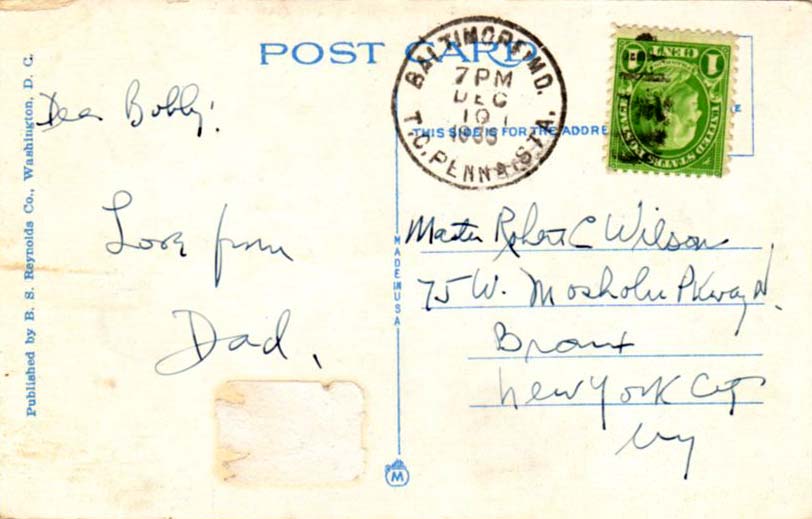 POST CARD
BALTIMORE, MD.
7 PM
DEC
10
T.C. PENNA. STA.
1 CENT 1
UNITED STATES POSTAGE
THIS SIDE IS FOR THE ADDRE
Dear Bobby:
Love from
Dad.
Master Robert C Wilson
75 W. Mosholu Pkway N.
Bronx
New York City
NY
MADE IN USA
M
Published by B. S. Reynolds Co., Washington, D. C.